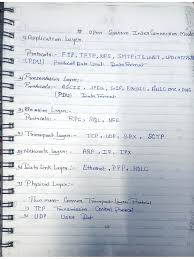 # Open System InterConnection Model
1) Application Layer
Protocols:- FTP, TFTP, NFS, SMTP, TELNET,
(PDU) Protocol Data Unit Data Format
2) Presentation Layer:-
Protocols:- ASCII, JPEG, GIF,
(PDU) Data Format
3) Session Layer:-
RPC, SQL, NFS
4) Transport Layer:- TCP, UDP, SPX, SCTP
5) Network Layer:- ARP, IP, IPX
6) Data Link Layer:- Ethernet, PPP, HDLC
7) Physical Layer:-
Two most Common Transport Layer Protocol
1) TCP Transmission Control Protocol
2) UDP User